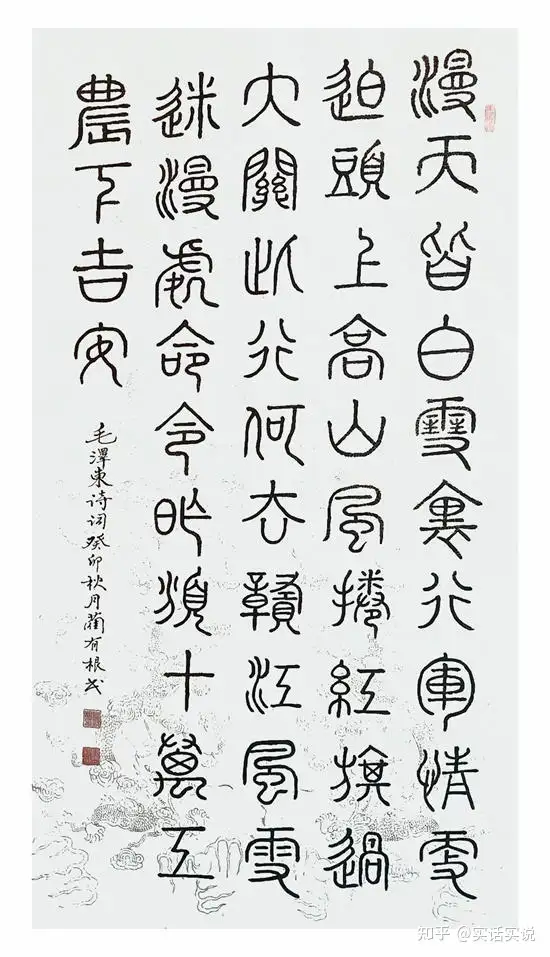 漫天皆白雪裏行軍情更
迫頭上高山風捲紅旗過
大關此行何去贛江風雪
迷漫處命令昨頒十萬工
農下吉安
毛澤東诗词癸卯秋月藺有根书
知乎 @实话实说